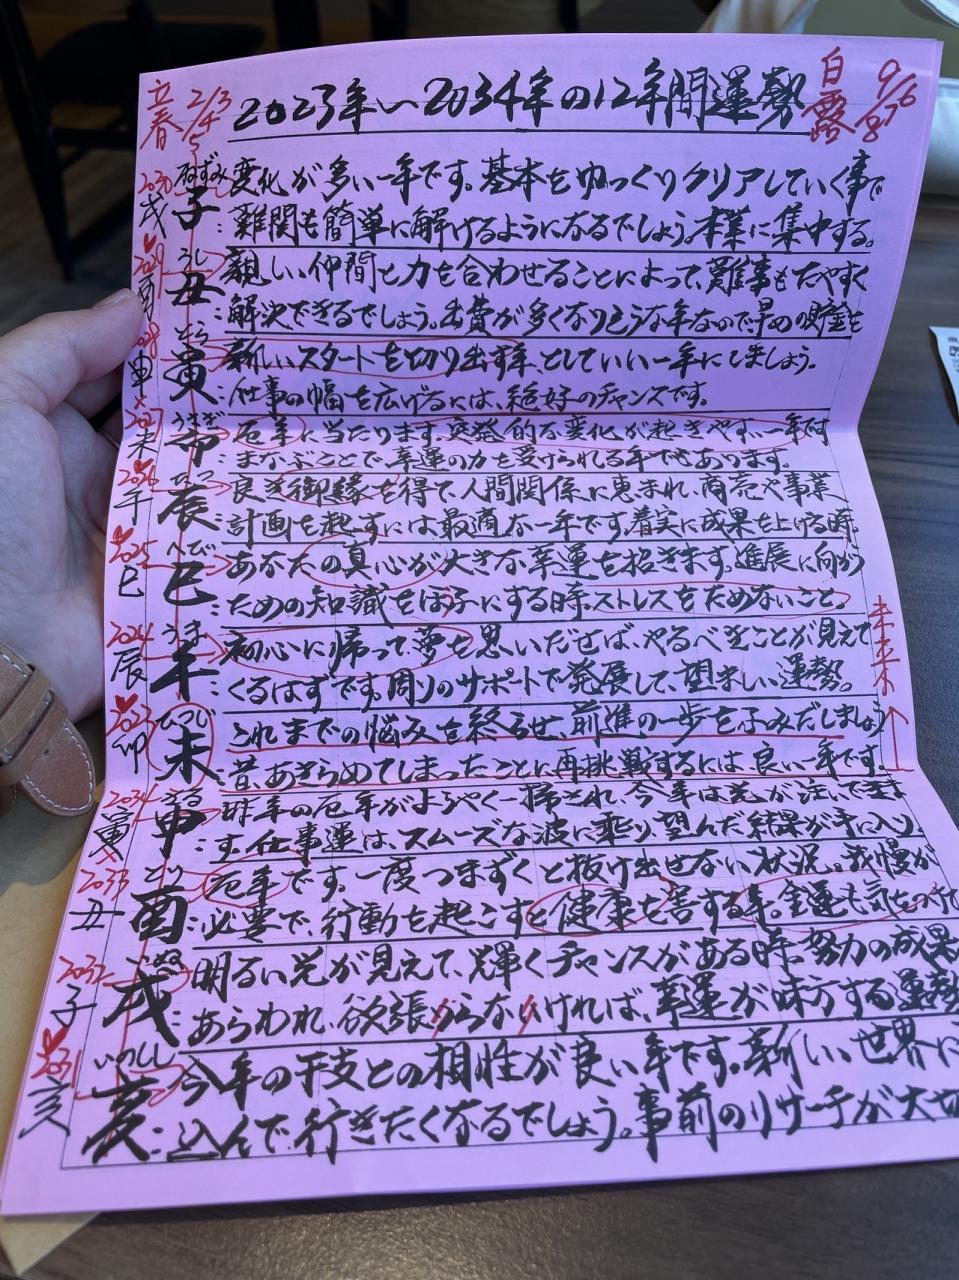 立春 2/3 2/4 5
2023年〜2034年の12年間運勢
白露 9/6 7 8
2030 戌
ねずみ
子 変化が多い一年です。基本をゆっくりクリアしていく事で
難関も簡単に解けるようになるでしょう。本業に集中する。
2029 酉
うし
丑 親しい仲間と力を合わせることによって、難事もたやすく
:解決できるでしょう。出費が多くなりそうな年なので、早めの貯金を
2028 申
とら
寅 新しいスタートを切り出す年、としていい一年にしましょう。
:仕事の幅を広げるには、絶好のチャンスです。
2027 未
うさぎ
卯 厄年に当たります。突発的な変化が起きやすい一年です
まなぶことで、幸運の力を受けられる年でもあります。
2026 午
たつ
辰 良き御縁を得て、人間関係に恵まれ、商売や事業
:計画を起すには最適な一年です。着実に成果を上げる時。
2025 巳
へび
巳 あなたの真心が大きな幸運を招きます。進展に向かう
:ための知識をほ子にする時。ストレスをためないこと。
2024 辰
うま
午 初心に帰って、夢を思いだせば、やるべきことが見えて
:くるはずです。周りのサポートで発展して、望ましい運勢。
未来
2023 卯
ひつじ
未 これまでの悩みを終らせ、前進の一歩をふみだしましょう
:昔、あきらめてしまったことに再挑戦するには、良い一年です。
2034 寅
さる
申 昨年の厄年がようやく一掃され、今年は光が注いでま
:す。仕事運は、スムーズな波に乗り、望んだ結果が手に入り、
2033 丑
とり
酉 厄年です。一度つまずくと抜け出せない状況。我慢が
:必要で、行動を起こすと健康を害する年。金運も気をつけ
2032 子
いぬ
戌 明るい光が見えて、輝くチャンスがある時。努力の成果
:あらわれ、欲張らなければ、幸運が味方する運勢
2031 亥
いのしし
亥 今年の干支との相性が良い年です。新しい世界に
:込んで行きたくなるでしょう。事前のリサーチが大切